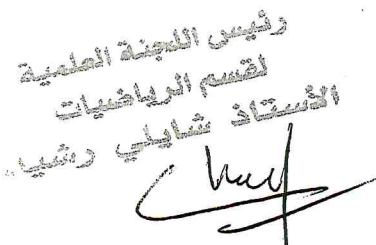 رئيس اللجنة العلمية
لقسم الرياضيات
الأستاذ شايلي رشيد